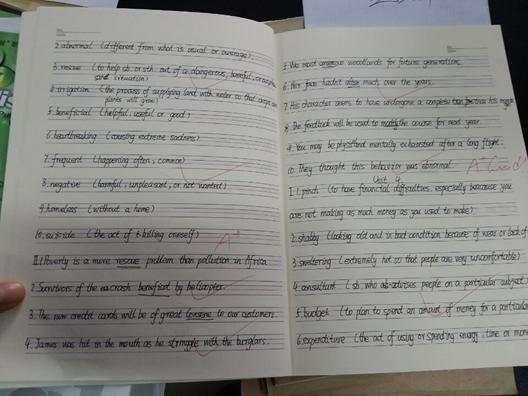 2. abnormal (different from what is usual or average).
3. rescue (to help sb. or sth. out of a dangerous, harmful, or
situation)
4. irrigation (the process of supplying land with water so that crops and
plants will grow)
5. beneficial (helpful, useful or good)
6. heartbreaking (causing extreme sadness)
7. frequent (happening often, common)
8. negative (harmful, unpleasant, or not wanted)
9. homeless (without a home)
10. suicide (the act of killing oneself)
A+
II. 1. Poverty is a more rescue problem than pollution in Africa
2. Survivors of the crash benefical by helicopter.
3. The new credit cards will be of great to our customers
4. James was hit in the mouth as he struggle with the burglars.
5. We most woodlands for future generation.
6. Her face hadn't alter much over the years.
7. His character seems to have undergone a complete since his
8. The feedback will be used to the course for next year.
9. You may be physical mentally exhausted after a long flight.
10. They thought this behavior was abnormal.
A+ Good!
Unit 4
I. 1. pinch (to have financial difficulties, especially because you
are not making as much money as you used to make)
2. shabby (looking old and in bad condition because of wear or lack of
3. sweltering (extremely hot so that people are very uncomfortable)
4. consultant (sb who advises people on a particular subject)
5. budget (to plan to spend an amount of money for a particular
6. expenditure (the act of using or spending energy, time or money